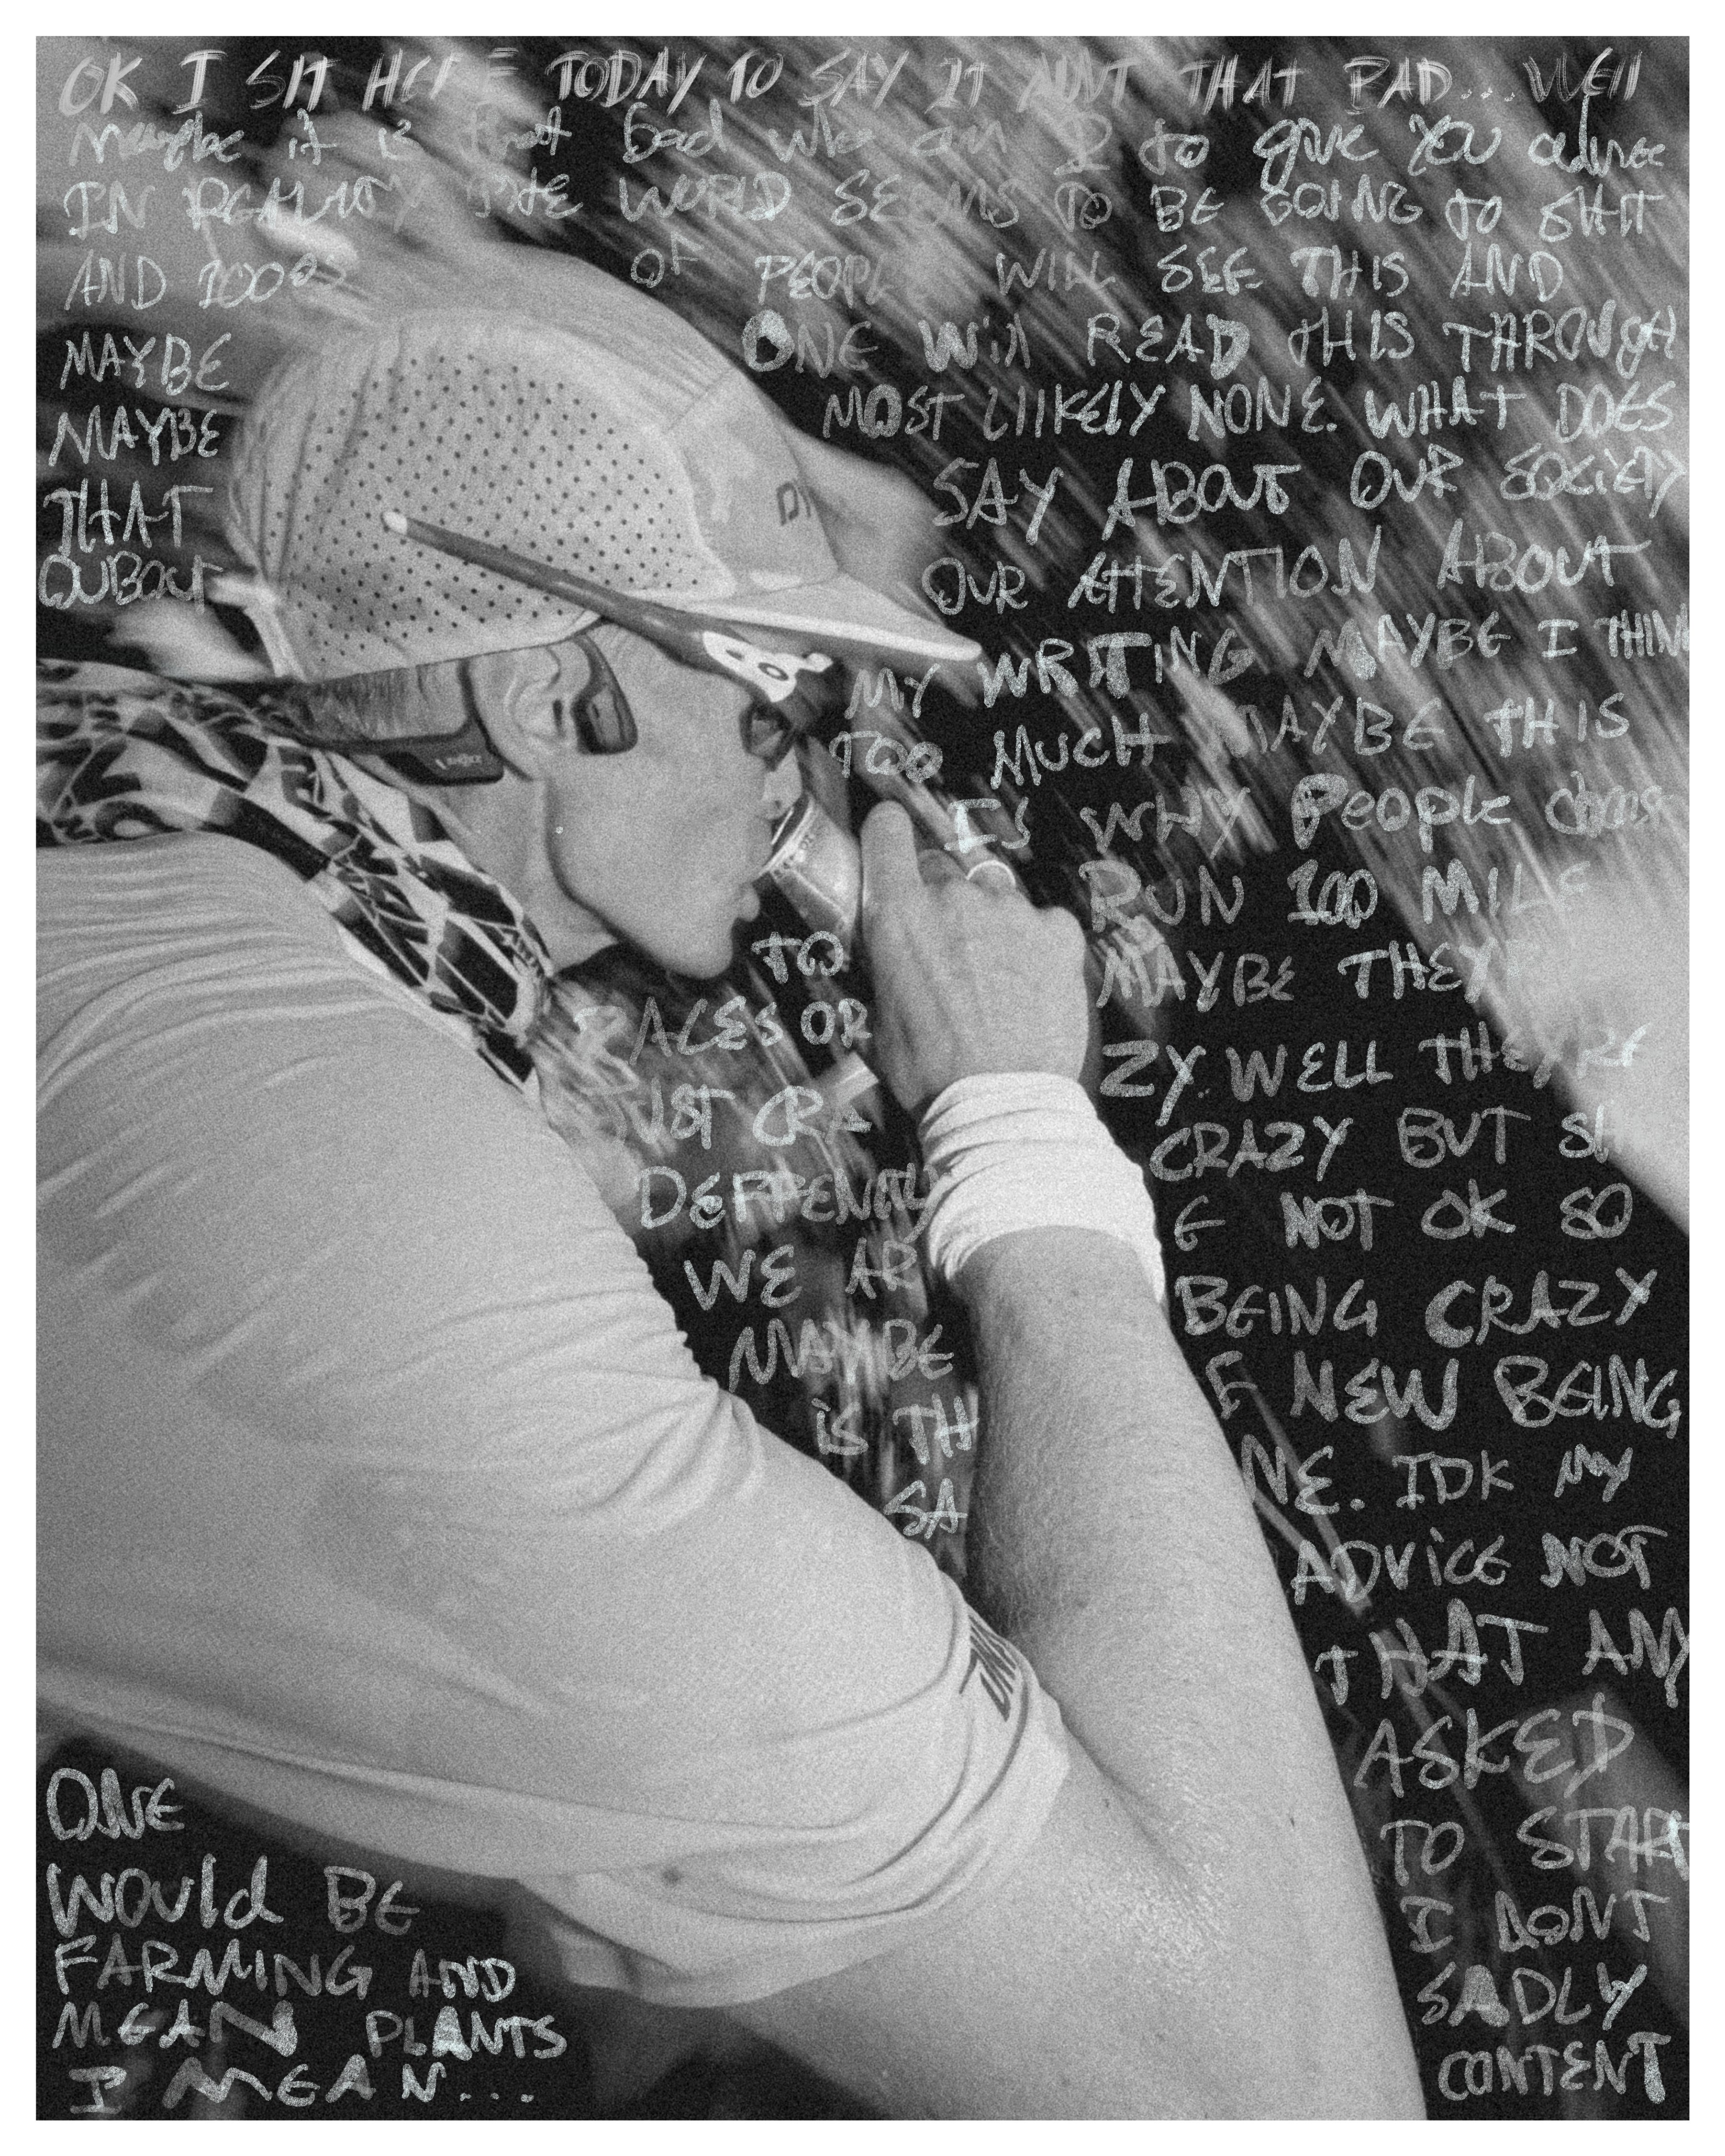 OK I SIT HERE TODAY TO SAY IT AINT THAT BAD... WEll
maybe it is that bad who am I to give YOU advice
IN REALITY THE WORLD SEEMS TO BE GOING TO SHIT
AND 1000s OF PEOPLE WILL SEE THIS AND
MAYBE ONE Will READ THIS THROUGH
MAYBE MOST LIIKELY NONE. WHAT DOES
THAT SAY ABOUT OUR SOCIETY
OUR ATTENTION ABOUT
MY WRITING MAYBE I THINK
TOO MUCH MAYBE THIS
IS WHY People
TO RUN 100 MILE
RACES OR MAYBE THEY
JUST CRA ZY.. WELL THEY'RE
DEFFENTLY CRAZY BUT
WE AR E NOT OK SO
MAYBE BEING CRAZY
iS TH E NEW BEING
SA NE. IDK MY
ADViCE NOT
THAT ANY
ONE ASKED
WOUld BE TO START
FARMING AND I DONT
MEAN PLANTS SADLY
I MEAN... CONTENT
DMOS